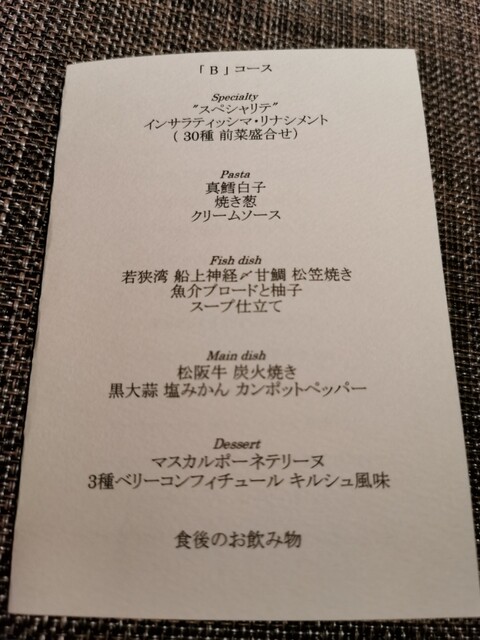 「B」コース
Specialty
"スペシャリテ"
インサラティッシマ・リナシメント
( 30種 前菜盛合せ)
Pasta
真鱈白子
焼き葱
クリームソース
Fish dish
若狭湾 船上神経〆甘鯛 松笠焼き
魚介ブロードと柚子
スープ仕立て
Main dish
松阪牛 炭火焼き
黒大蒜 塩みかん カンポットペッパー
Dessert
マスカルポーネテリーヌ
3種ベリーコンフィチュール キルシュ風味
食後のお飲み物